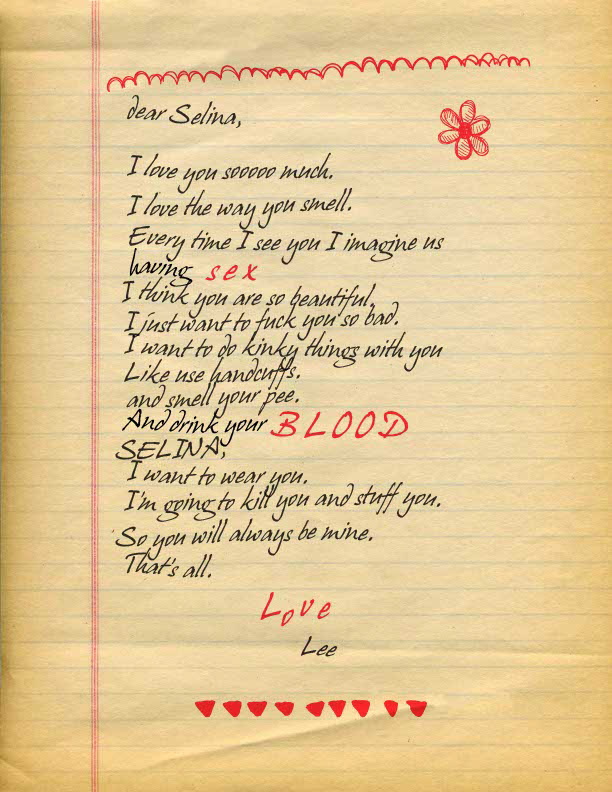 dear Selina,
I love you sooooo much.
I love the way you smell.
Every time I see you I imagine us
having sex
I think you are so beautiful.
I just want to fuck you so bad.
I want to do kinky things with you
Like use handcuffs.
and smell your pee.
And drink your BLOOD
SELINA,
I want to wear you.
I'm going to kill you and stuff you.
So you will always be mine.
That's all.
Love
Lee